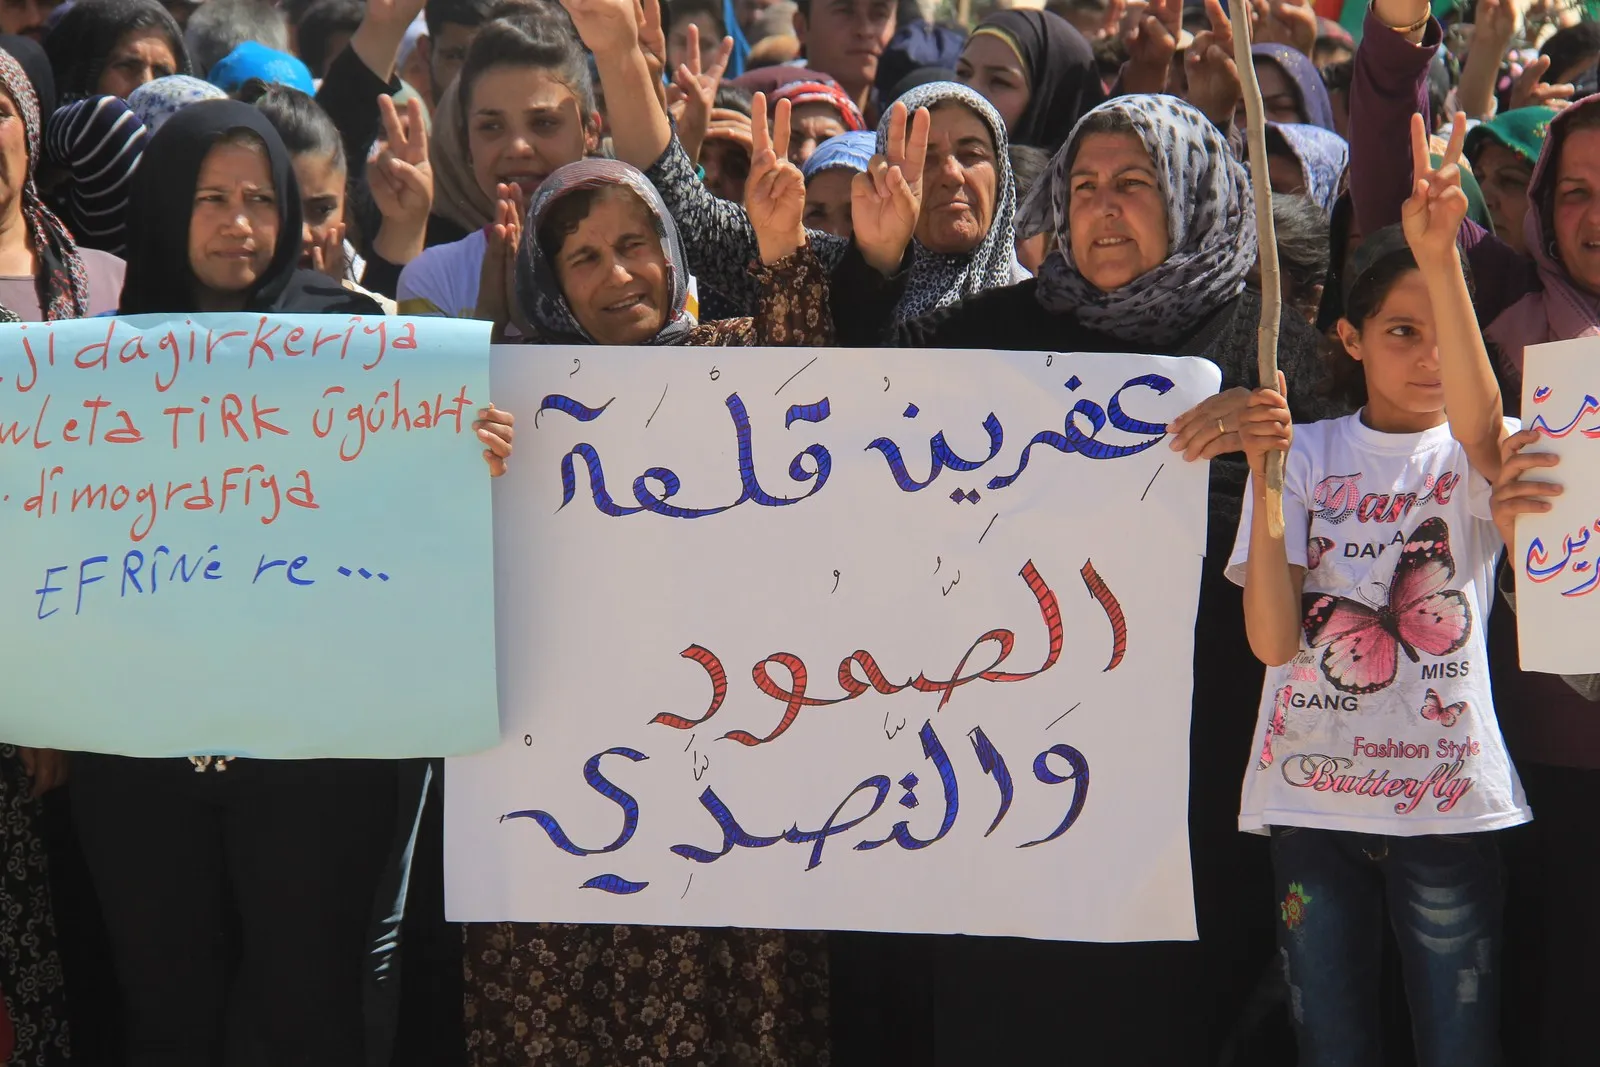 ji dagirkerîya
TiRK ûgûhart
dîmografîya
EFRÎNÊ re...
عِفْرِينُ قَلْعَةُ
الصُّمُودِ
وَالتَّصَدِّيْ
Dance
MISS
GANG
Fashion Style
Butterfly